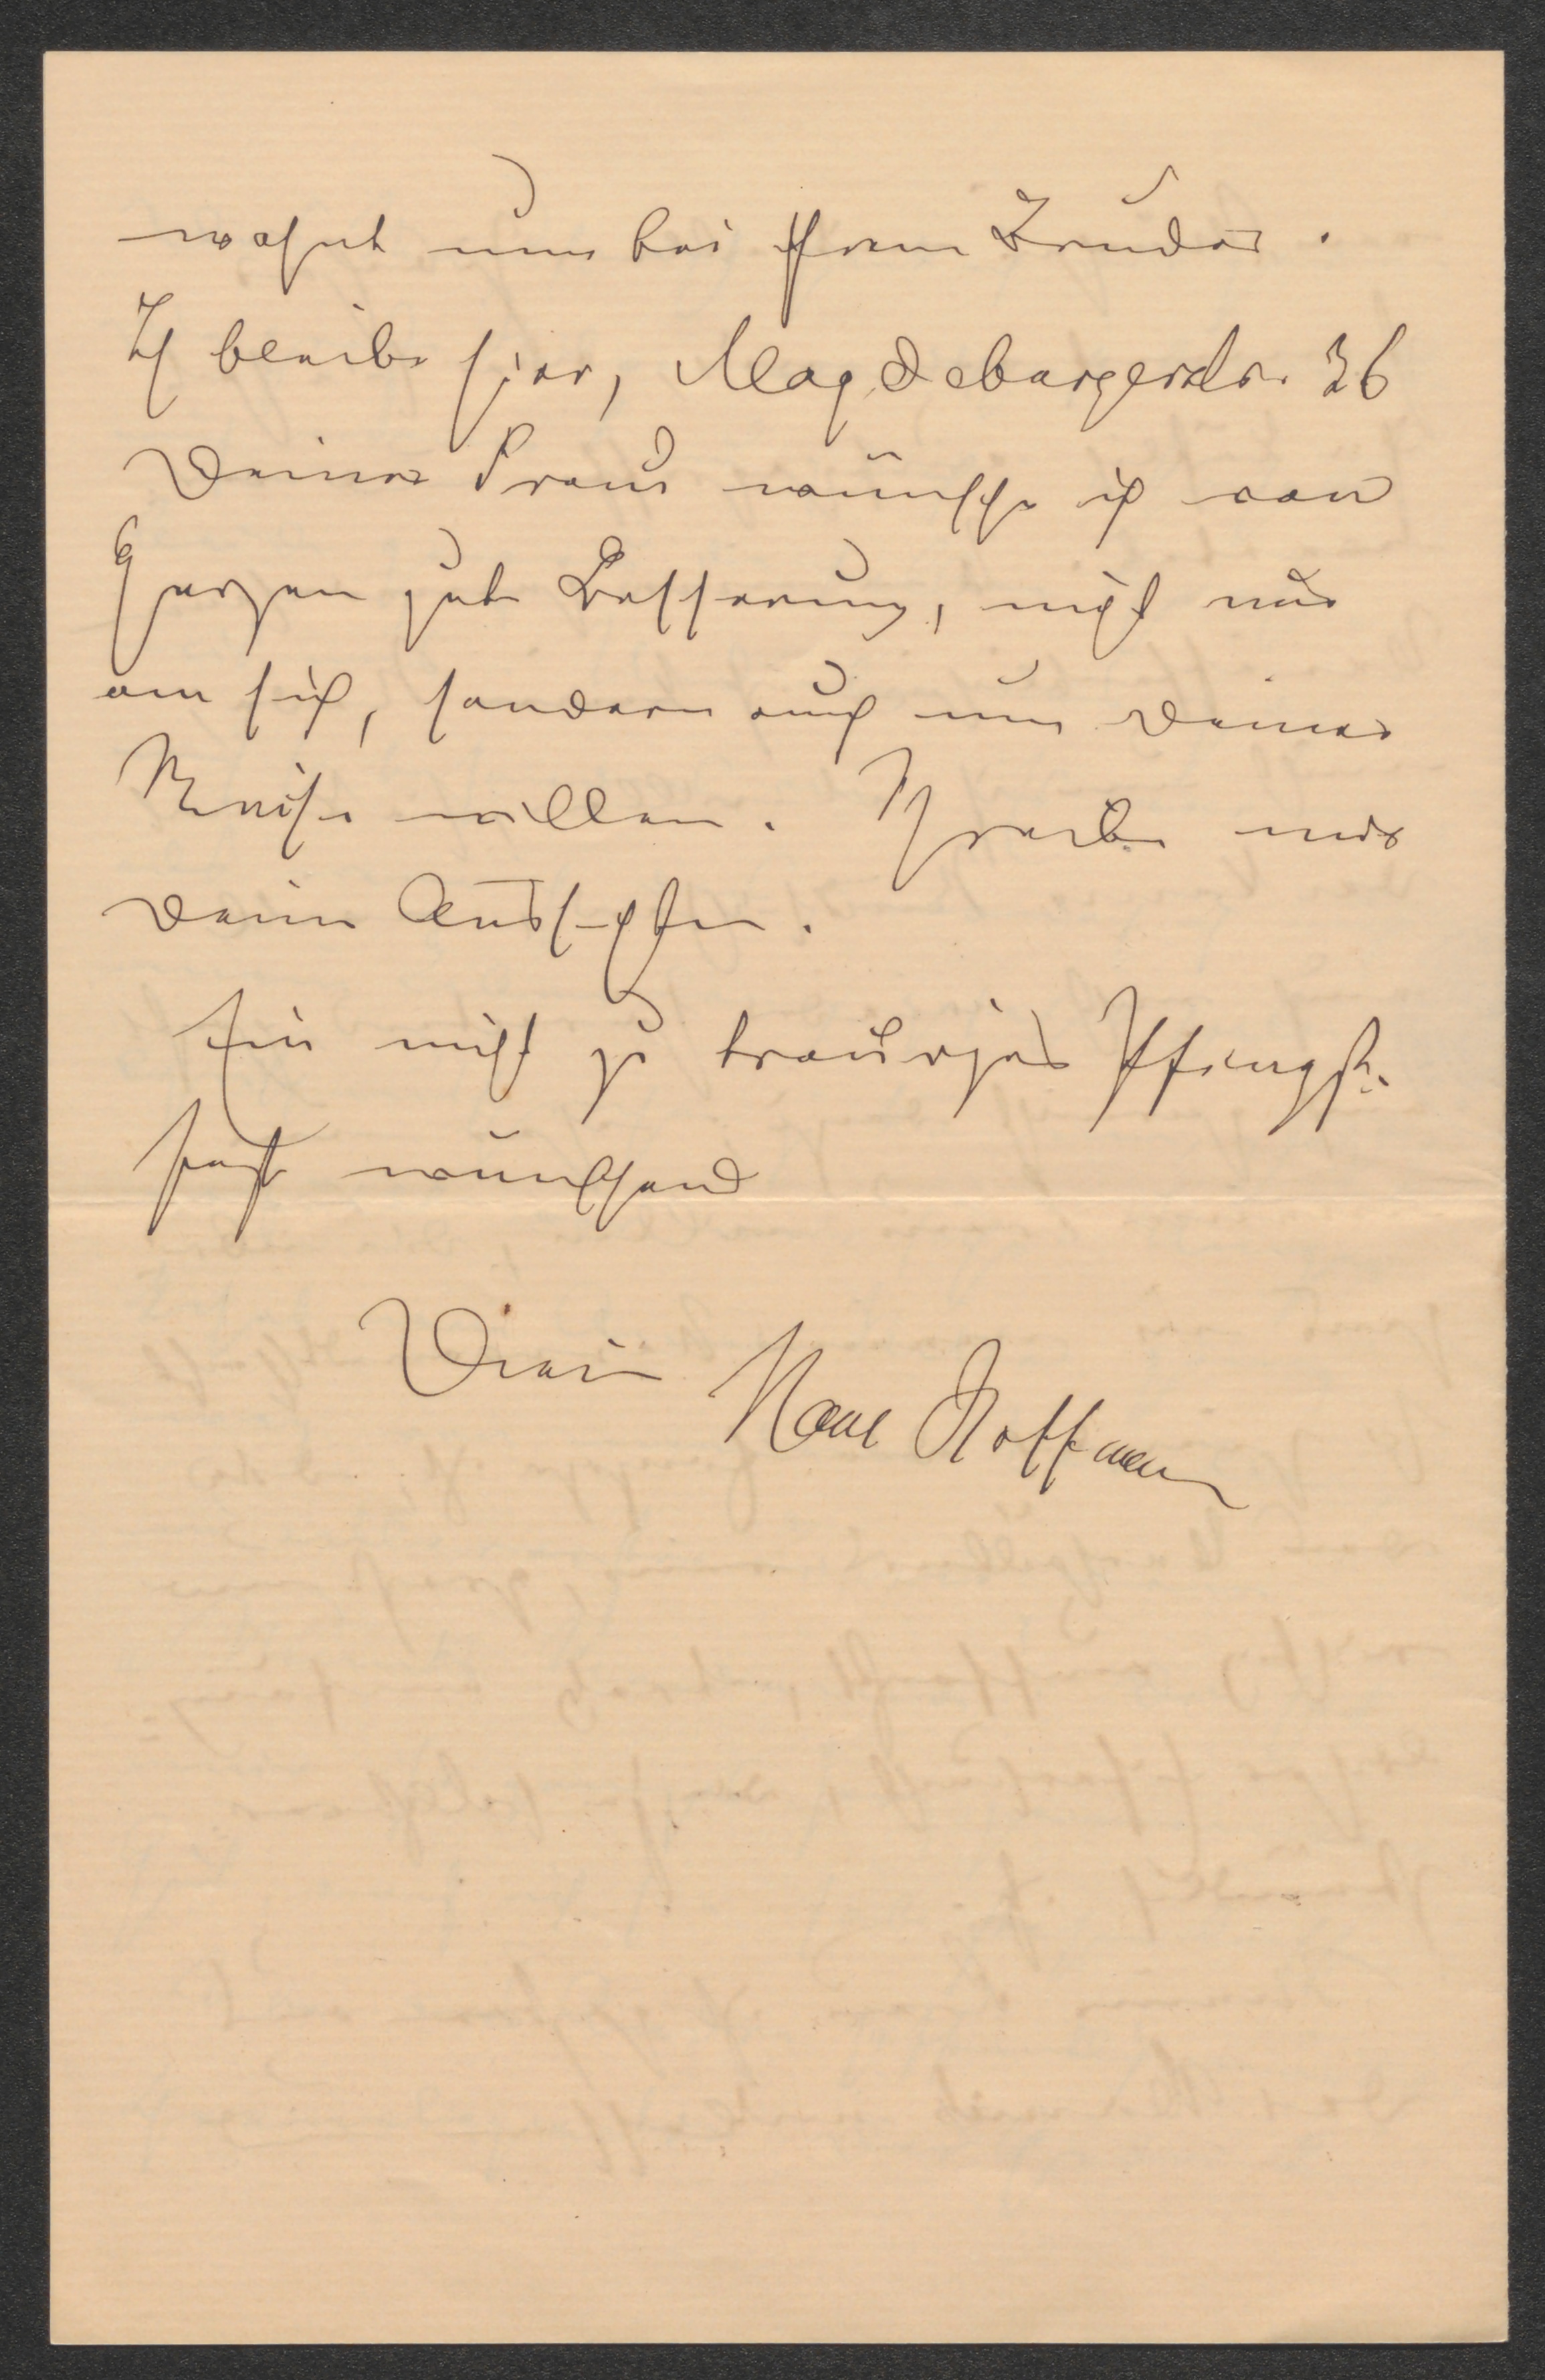 wohnt nun bei ihrem Bruder.
Ich bleibe hier, Magdeburgerstr. 36
Deiner Frau wünsche ich von
Herzen gute Besserung, nicht nur
an sich, sondern auch um Deiner
Reise willen. Schreibe mir
Deine Aussichten.
Ein nicht zu trauriges Pfingst-
fest wünschend
Dein
Hans Hoffmann